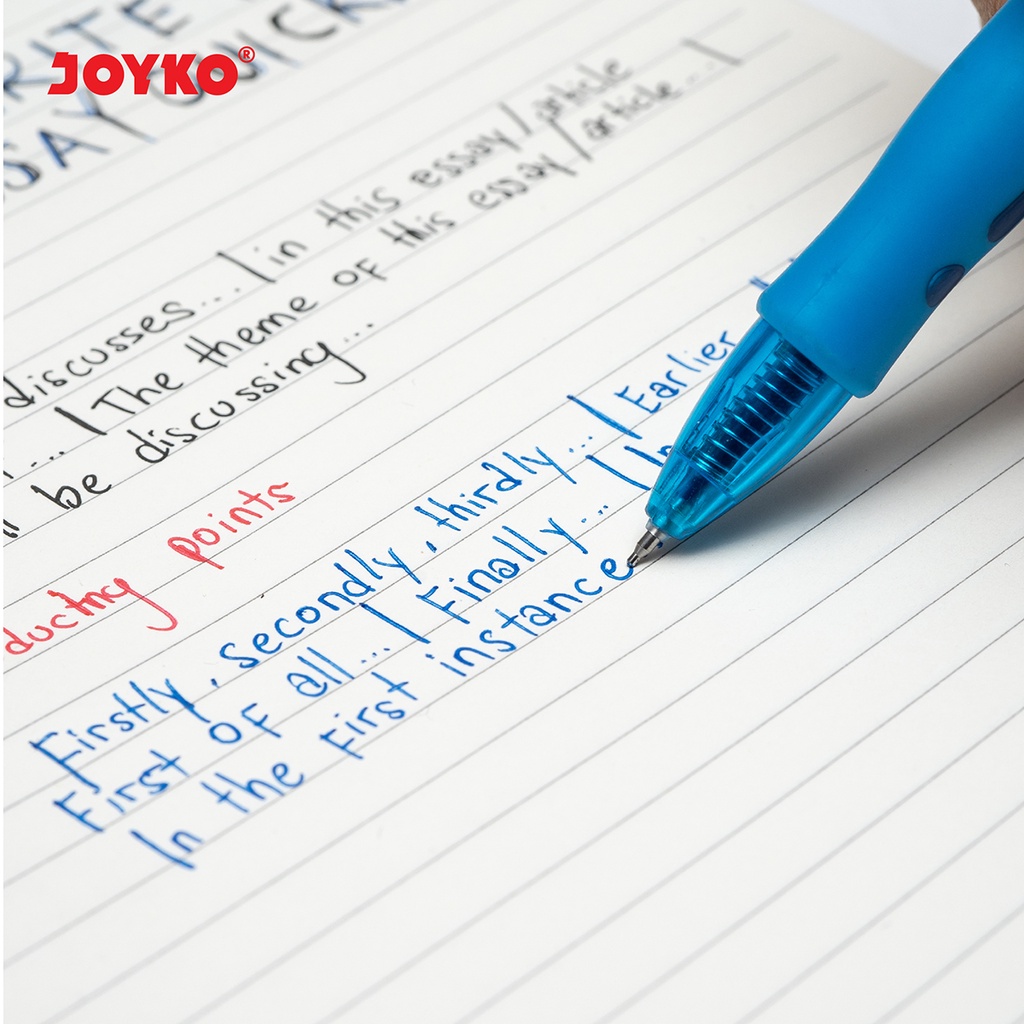 JOYKO®
RITE
SAY QUICK
discusses... | in this essay/article
... | The theme of this essay/article... |
be discussing...
ducting points
Firstly, secondly, thirdly... | Earlier
First of all... | Finally... | In
In the first instance